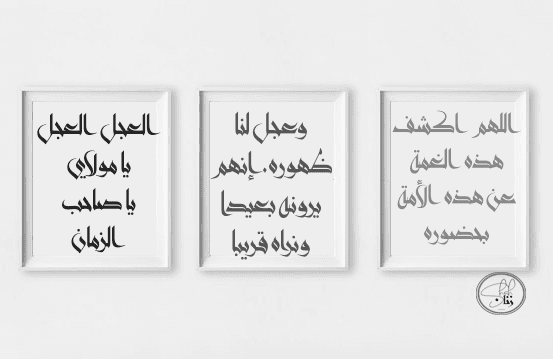 اللهم اكشف
هذه الغمة
عن هذه الأمة
بحضوره
وعجل لنا
ظهوره. إنهم
يرونه بعيدا
ونراه قريبا
العجل العجل
يا مولاي
يا صاحب
الزمان